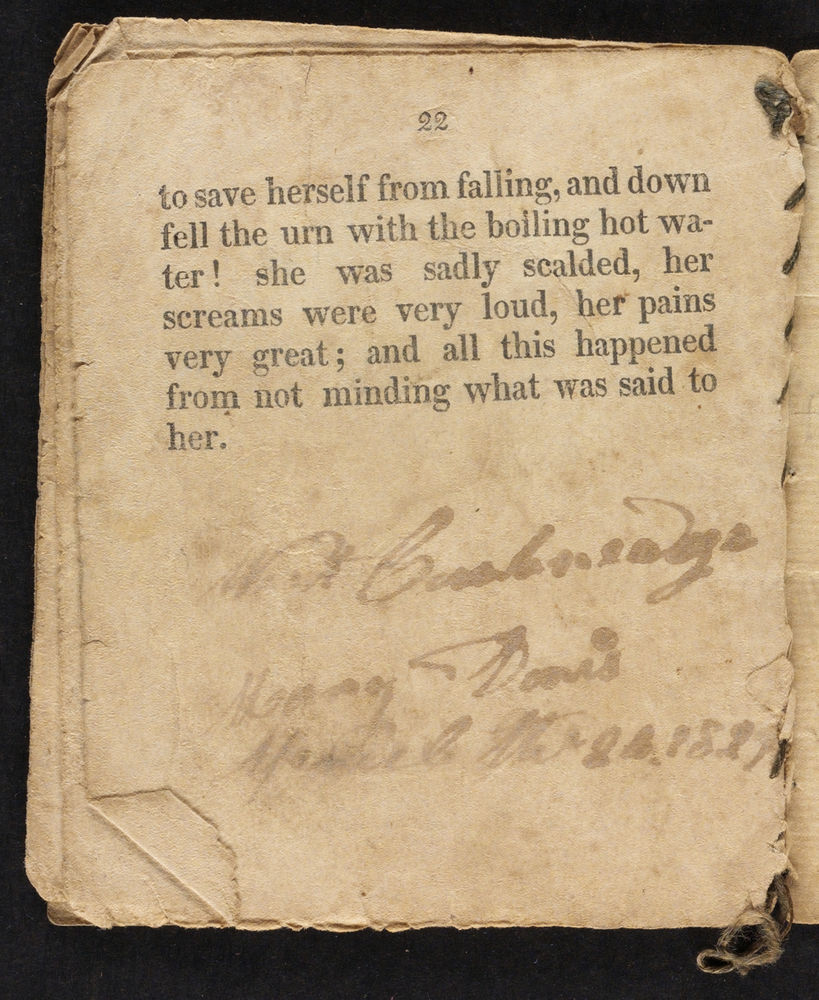 22
to save herself from falling, and down
fell the urn with the boiling hot wa-
ter! she was sadly scalded, her
screams were very loud, her pains
very great; and all this happened
from not minding what was said to
her.
Davis
March